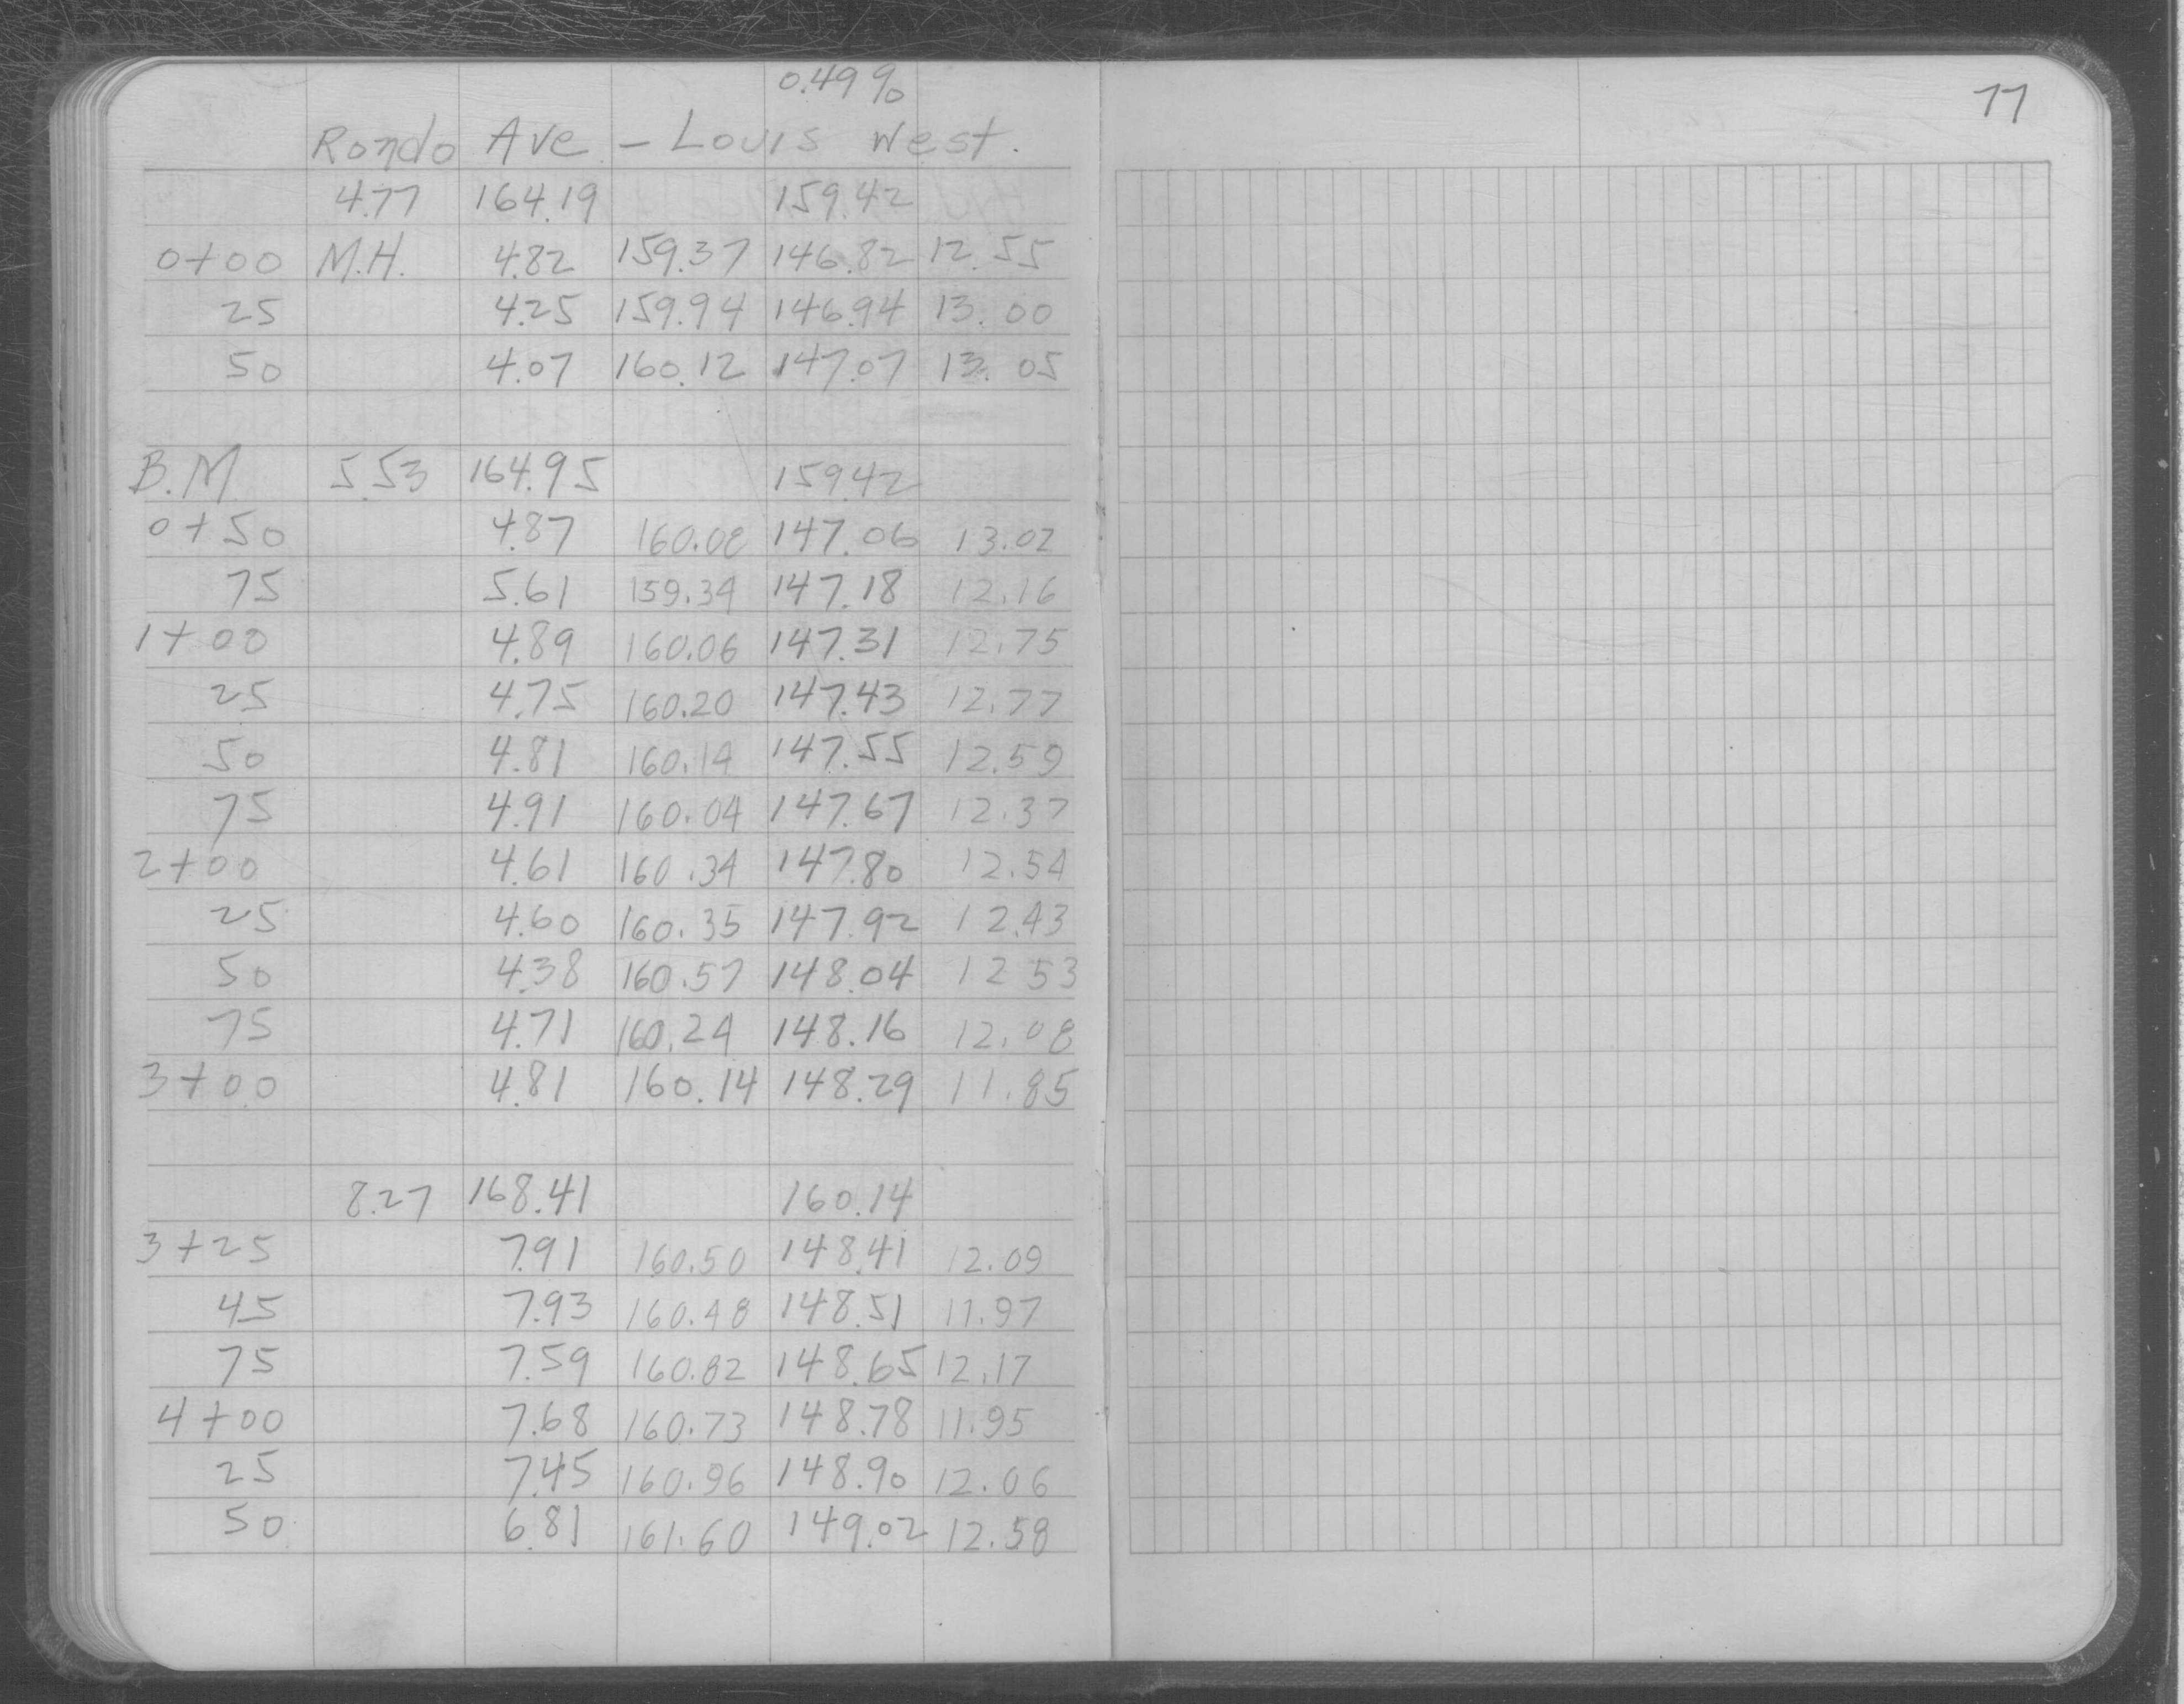 0.49 %
Rondo Ave - Louis West.
4.77 164.19 159.42
0+00 M.H. 4.82 159.37 146.82 12.55
25 4.25 159.94 146.94 13.00
50 4.07 160.12 147.07 13.05
B.M 5.53 164.95 159.42
0+50 4.87 160.08 147.06 13.02
75 5.61 159.34 147.18 12.16
1+00 4.89 160.06 147.31 12.75
25 4.75 160.20 147.43 12.77
50 4.81 160.14 147.55 12.59
75 4.91 160.04 147.67 12.37
2+00 4.61 160.34 147.80 12.54
25 4.60 160.35 147.92 12.43
50 4.38 160.57 148.04 12 53
75 4.71 160.24 148.16 12.08
3+00 4.81 160.14 148.29 11.85
8.27 168.41 160.14
3+25 7.91 160.50 148.41 12.09
45 7.93 160.48 148.51 11.97
75 7.59 160.82 148.65 12.17
4+00 7.68 160.73 148.78 11.95
25 7.45 160.96 148.90 12.06
50 6.81 161.60 149.02 12.58
77